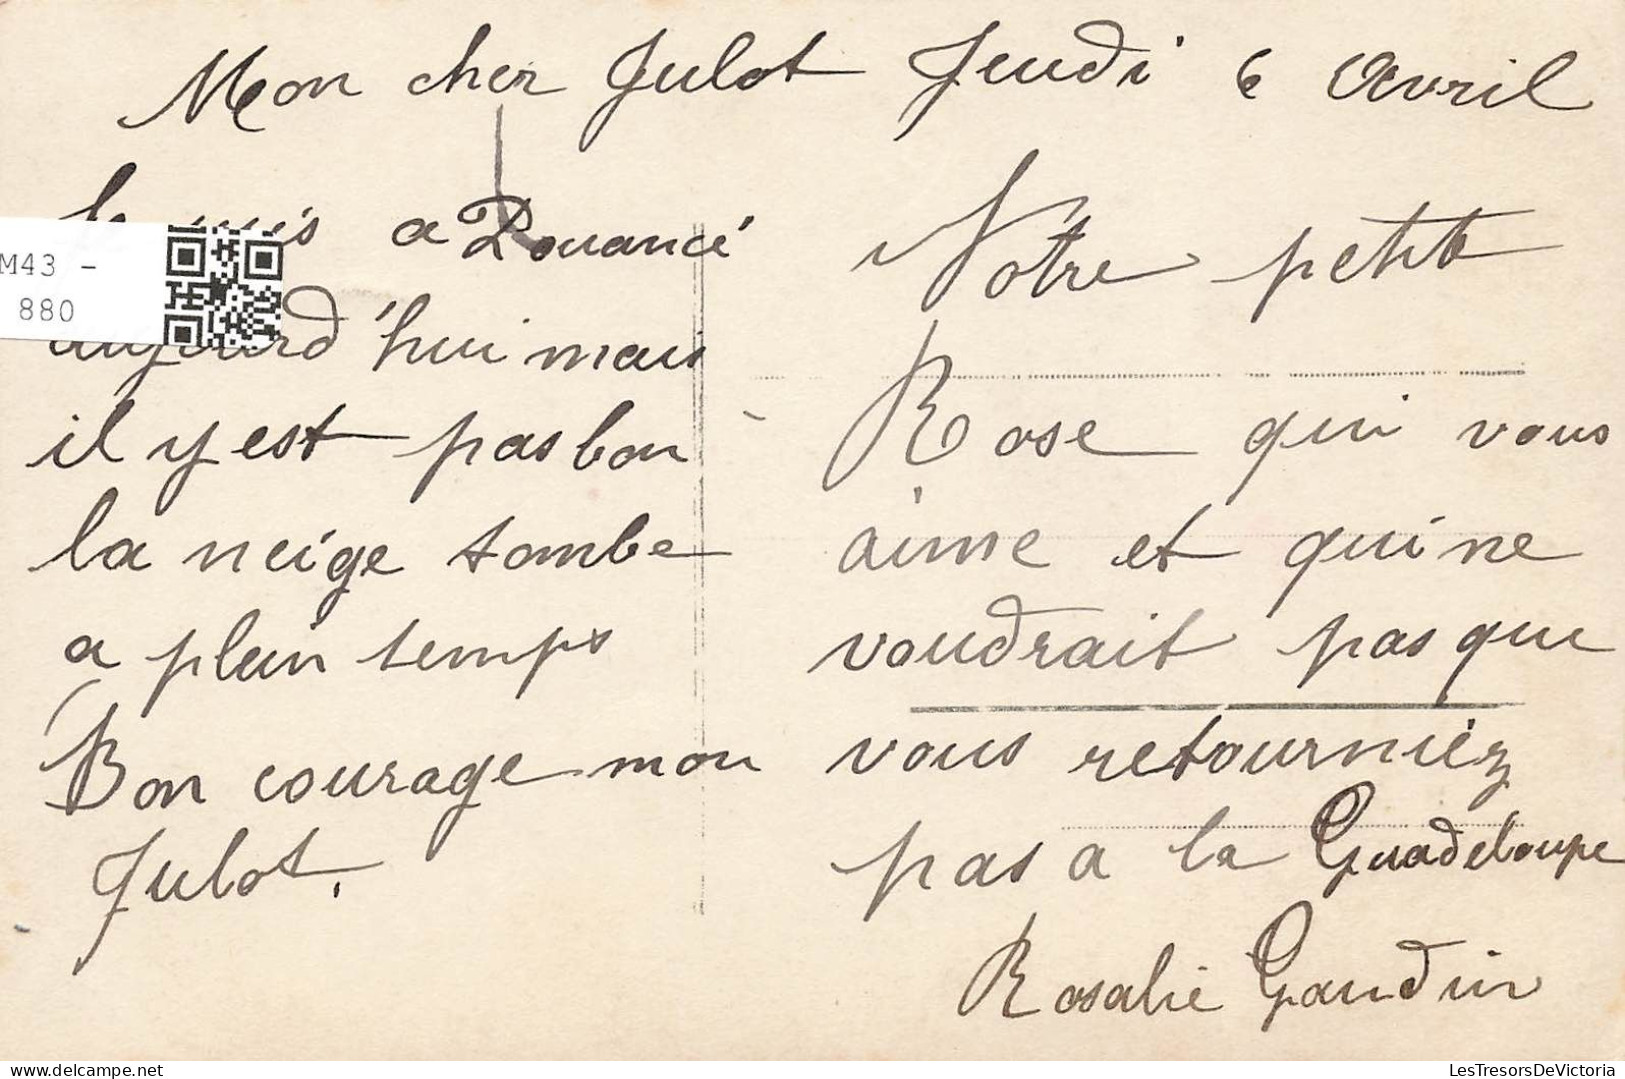 Mon cher Julot Jeudi 6 Avril
suis a Pouancé
aujourd'hui mais
il y est pas bon
la neige tombe
a plein temps
Bon courage mon
Julot.
Votre petite
Rose qui vous
aime et qui ne
voudrait pas que
vous retourniez
pas a la Guadeloupe
Rosalie Gaudin
M43 -
880
LesTresorsDeVictoria